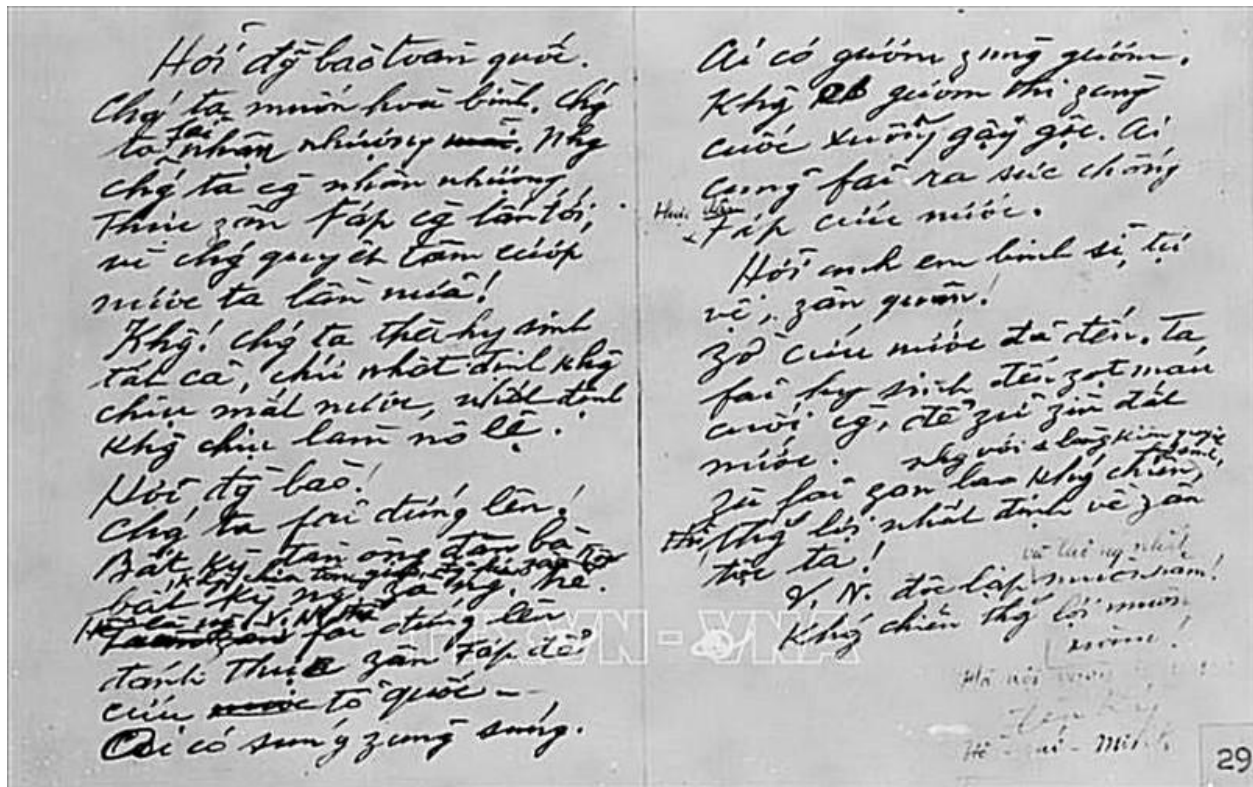 Hỡi đg̃ bào toàn quốc.
Chǵ ta muốn hoà bình, chǵ
ta fải nhân nhượng. Nhg
chǵ ta cg̀ nhân nhượng
Thực zân Fáp cg̀ lấn tới,
vì chǵ quyết tâm cướp
nước ta lần nữa!
Khg! chǵ ta thà hy sinh
tất cả, chứ nhất định khg
chịu mất nước, nhất định
khg chịu làm nô lệ.
Hỡi đg̀ bào!
Chǵ ta fải đứng lên!
Bất kỳ đàn ông đàn bà
bất kỳ ng' zà ng' trẻ.
fải đứng lên
đánh thực zân Fáp để
cứu tổ quốc -
Ai có súng zùng súng.
Ai có gươm zùng gươm.
Khg có gươm thì zùng
cuốc xuổng gậy gộc. Ai
cũng fải ra sức chống
Fáp cứu nước.
Hỡi anh em binh sĩ, tự
vệ, zân quân!
Zờ cứu nước đã đến. Ta
fải hy sinh đến zọt máu
cuối cg̀, để zữ zìn đất
nước.
Zù fải zan lao khǵ chiến,
nhg với 1 lòng kiên quyết
hi sinh,
Thắg lợi nhất định về zân
tộc ta!
V. N. độc lập và thống nhất
muôn năm!
Khǵ chiến thắg lợi muôn
năm!
Hà nội
Hồ - chí - Minh.
TTXVN - VNA
29